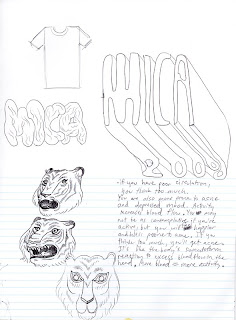 MICA
MICA
- if you have poor circulation,
you think too much.
You are also more prone to acne
and depressed mood. Activity
increases blood flow. You may
not be as contemplative if you're
active, but you will be happier
and less prone to acne. If you
think too much, you'll get acne.
It's like the body's
reacting to excess blood flow in the
head. More blood = more activity.